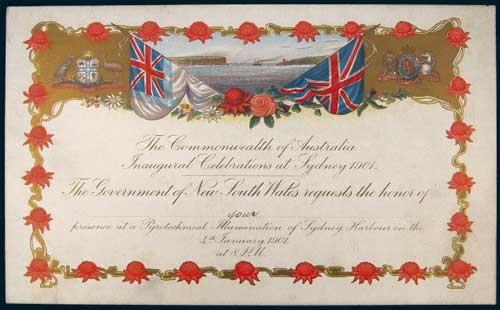 The Commonwealth of Australia
Inaugural Celebrations at Sydney 1901.
The Government of New South Wales requests the honor of
your
presence at a Pyrotechnical Illumination of Sydney Harbour on the
4th January, 1901,
at 8 P.M.